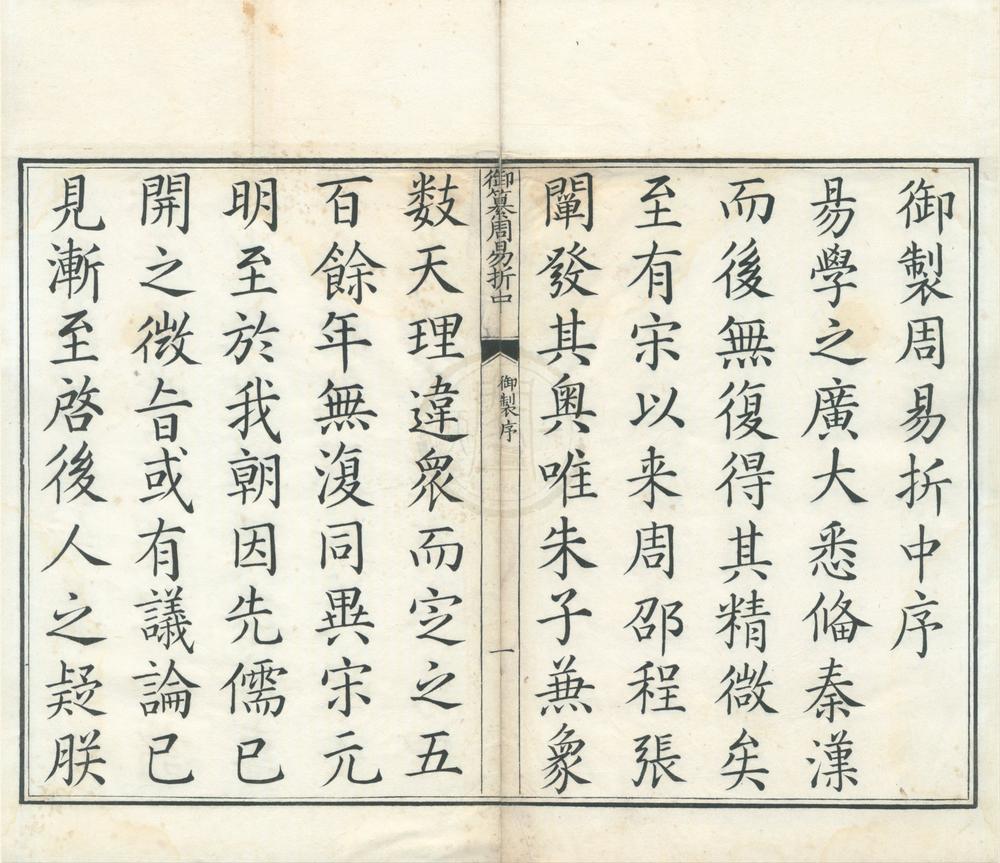 御製周易折中序
易學之廣大悉俻秦漢
而後無復得其精微矣
至有宋以来周邵程張
闡發其奥唯朱子兼象
御纂周易折中
御製序
一
数天理違衆而定之五
百餘年無復同異宋元
明至於我朝因先儒已
開之微旨或有議論已
見漸至啓後人之疑朕